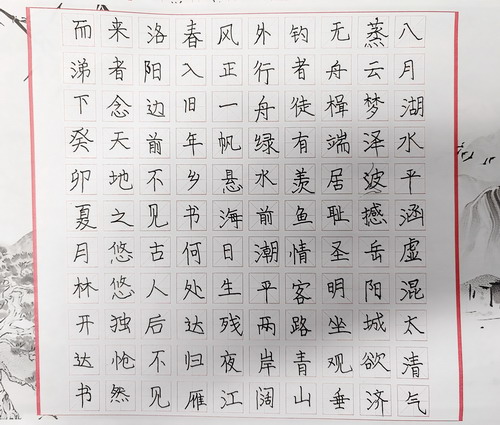 八月湖水平涵虚混太清气
蒸云梦泽波撼岳阳城欲济
无舟楫端居耻圣明坐观垂
钓者徒有羡鱼情客路青山
外行舟绿水前潮平两岸阔
风正一帆悬海日生残夜江
春入旧年乡书何处达归雁
洛阳边前不见古人后不见
来者念天地之悠悠独怆然
而涕下癸卯夏月林开达书